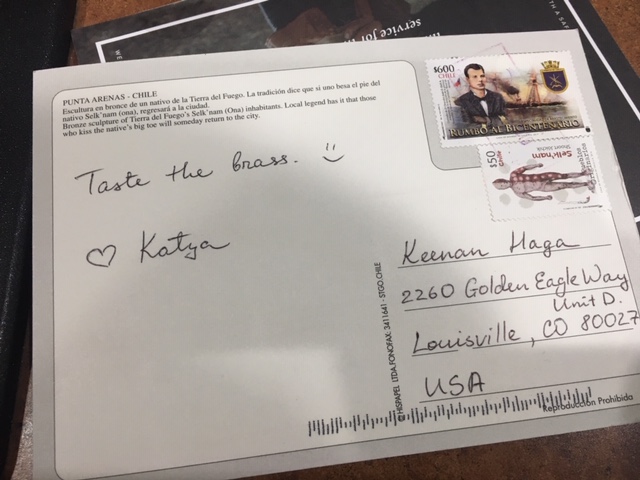 service for
PUNTA ARENAS - CHILE
Escultura en bronce de un nativo de la Tierra del Fuego. La tradición dice que si uno besa el pie del
nativo Selk'nam (ona), regresará a la ciudad.
Bronze sculpture of Tierra del Fuego's Selk'nam (Ona) inhabitants. Local legend has it that those
who kiss the native's big toe will someday return to the city.
$600
CHILE
RUMBO AL BICENTENARIO
$50
Chile
Selk'nam
Taste the brass.
♡ Katya
Keenan Haga
2260 Golden Eagle Way
Unit D.
Louisville, CO 80027
USA
HISPAPEL LTDA.FONOFAX: 3411641 - STGO.CHILE
Reproducción Prohibida